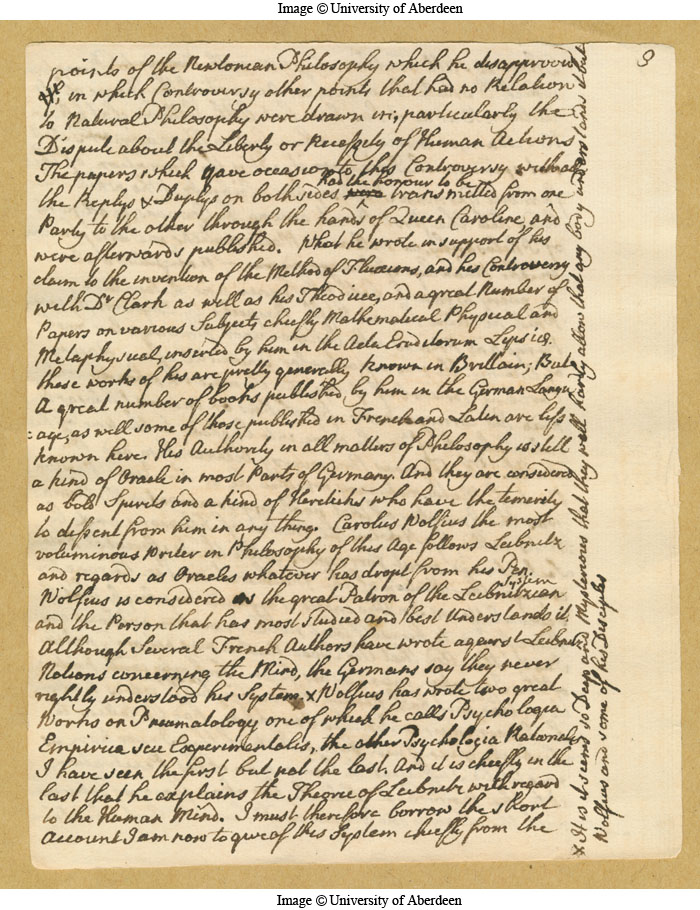 Image © University of Aberdeen
3
points of the Newtonian Philosophy which he disapprovd
of, in which Controversy other points that had no Relation
to Natural Philosophy were drawn in, particularly the
Dispute about the Liberty or Necessity of Human Actions
The papers which gave occasion to this Controversy with all
the Replys & Duplys on both sides were had the honour to be transmitted from one
Party to the other through the hands of Queen Caroline and
were afterwards published. What he wrote in support of his
claim to the invention of the Method of Fluxions, and his Controversy
with Dr Clark as well as his Theodicee, and a great Number of
Papers on various Subjects chiefly Mathematical Physical and
Metaphysical, inserted by him in the Acta Eruditorum Lipsiae.
these works of his are pretty generally known in Brittain; But
A great number of books published by him in the German Langu
=age, as well some of those published in French and Latin are less
known here. His Authority in all matters of Philosophy is still
a kind of Oracle in most Parts of Germany. And they are considered
as bold Spirits and a kind of Hereticks who have the temerity
to dissent from him in any thing. Carolus Wolfius the most
voluminous writer in Philosophy of this Age follows Leibnitz
and regards as Oracles whatever has dropt from his Pen.
Wolfius is considered as the great Patron of the Leibnitzian System
and the Person that has most studied and best understands it.
Although several French Authors have wrote against Leibnitz
Notions concerning the Mind, the Germans say they never
rightly understood his System. x Wolfius has wrote two great
Works on Pneumatology one of which he calls Psychologia
Empirica seu Experimentalis, the other Psychologia Rationalis
I have seen the first but not the last. And it is chiefly in the
last that he explains the Theorie of Leibnitz with regard
to the Human Mind. I must therefore borrow the short
Account I am now to give of this System chiefly from the
x It is it seems so Deep and Mysterious that they will hardly allow that any body understands it but
Wolfius and some of his Disciples
Image © University of Aberdeen